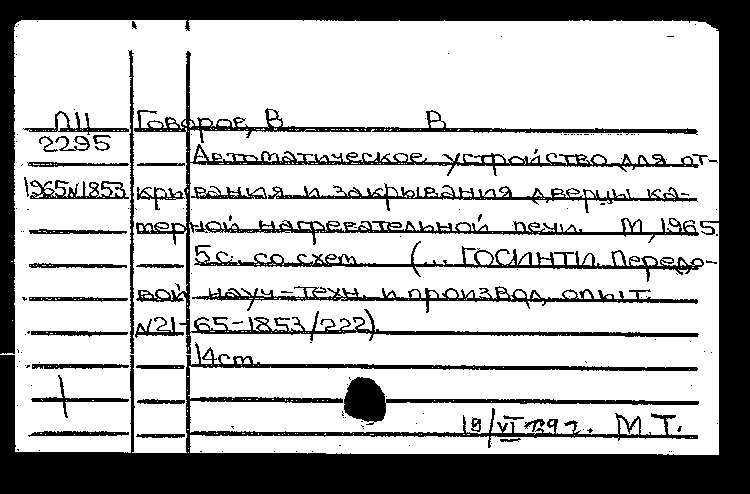 ПII Говоров, В. В.
2295
Автоматическое устройство для от-
1965N1853 крывания и закрывания дверцы ка-
мерной нагревательной печи. М, 1965
5 с. со схем (... ГОСИНТИ. Передо-
вой науч-техн. и производ, опыт.
N21-65-1853/222).
14см.
М.Т.